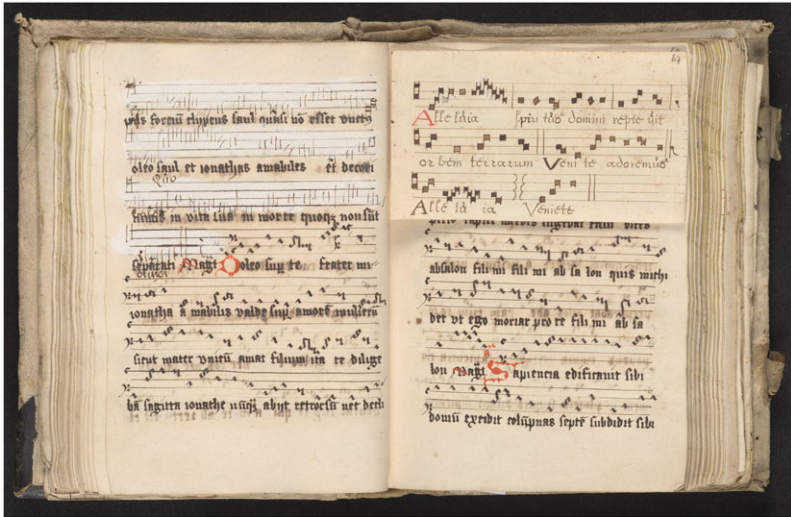 fortiū clypeus saul quasi nō esset vnctꝰ
oleo saul et ionathas amabiles et decori
nimis in vita sua in morte quoqꝫ non sūt
sep̄arati Mag̃t Doleo sup̱ te frater mi
ionatha a mabilis valde sup̱ amorē mulierū
sicut mater vnicū amat filium ita te dilige
bā sagitta ionathe nūqꝫ abijt retrorsū nec decli
Alleluia spūs domini reple uit
orbem terrarum Veni te adoremus
Allelu ia Venite
absalon fili mi fili mi ab sa lon quis michi
det vt ego moriar pro te fili mi ab sa
lon Mag̃t Sapiencia edificauit sibi
domū excidit colūpnas septē subdidit sibi